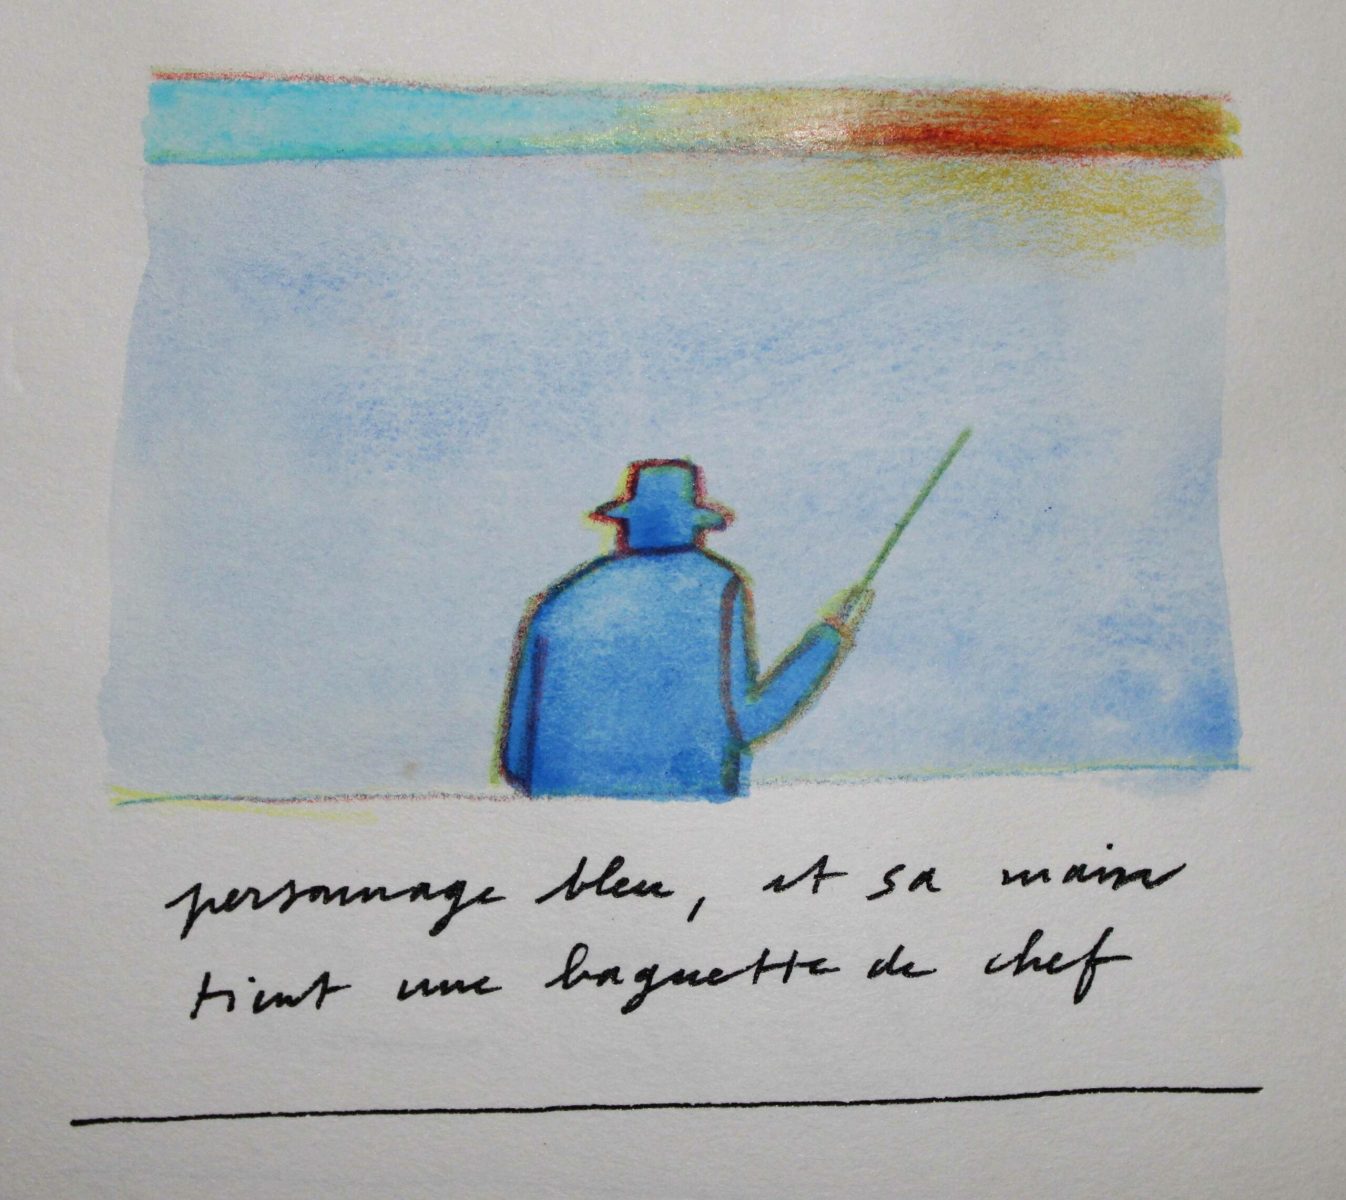 personnage bleu, et sa main
tient une baguette de chef